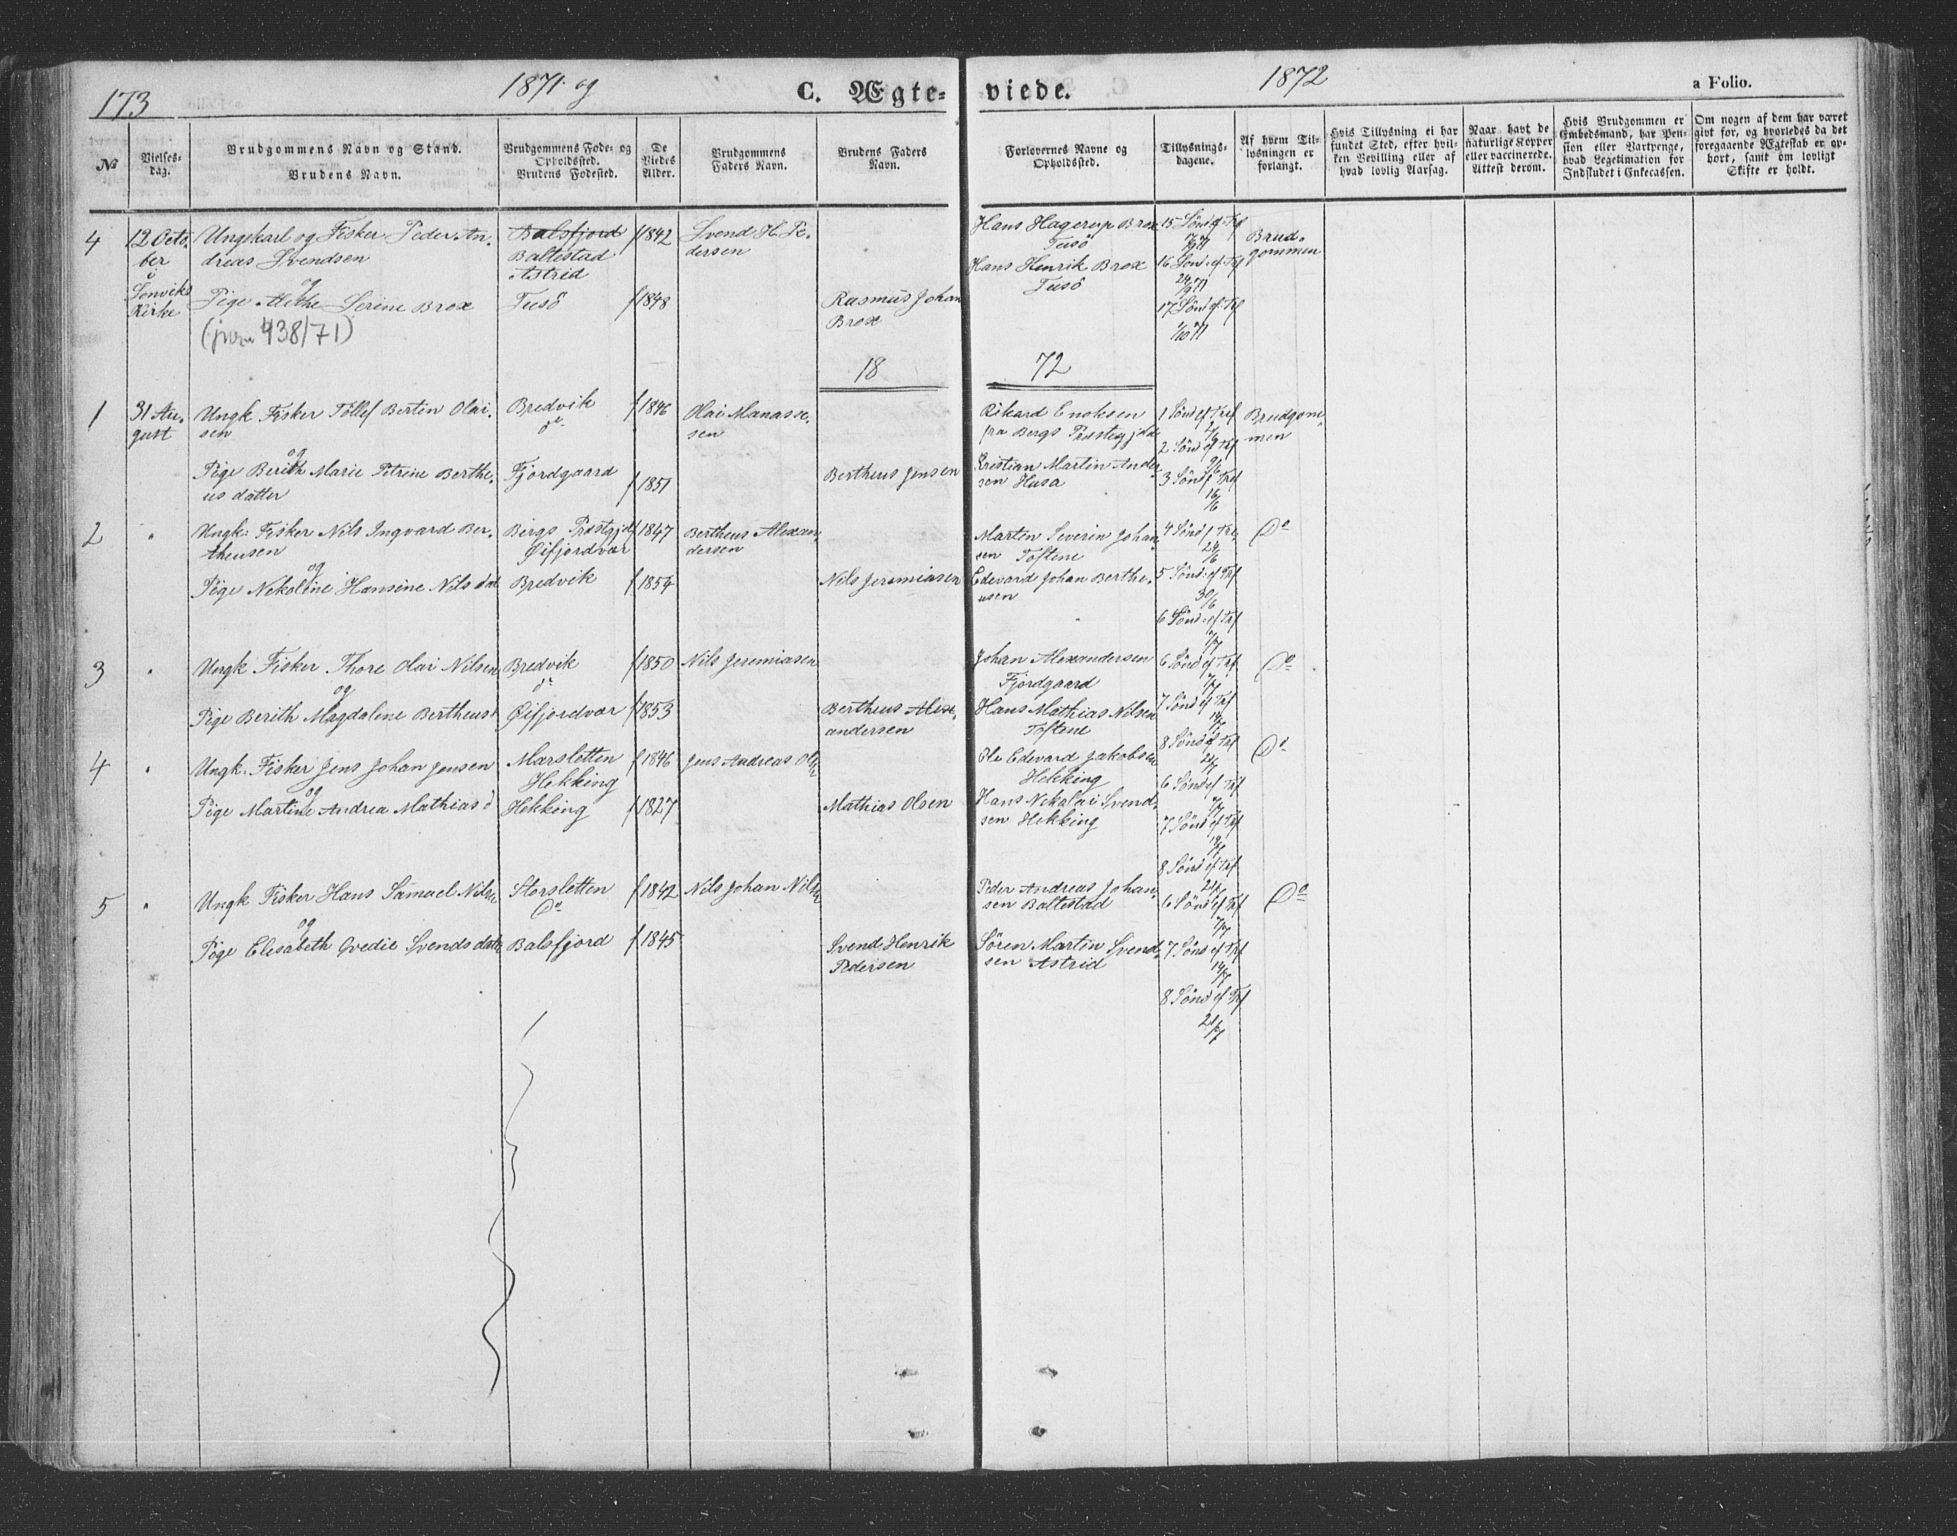 173
1871 og
C. Ægte-
viede.
1872
a Folio.
No
Vielses-
dag.
Brudgommens Navn og Stand.
Brudens Navn.
Brudgommens Føde- og
Opholdssted.
Brudens Fødested.
De
Viedes
Alder.
Brudgommens
Faders Navn.
Brudens Faders
Navn.
Forlovernes Navne og
Opholdssted.
Tillysnings-
dagene.
Af hvem Til-
lysningen er
forlangt.
Hvis Tillysning ei har
fundet Sted, efter hvil-
ken Bevilling eller af
hvad lovlig Aarsag.
Naar havt de
naturlige Kopper
eller vaccinerede.
Attest derom.
Hvis Brudgommen er
Embedsmand, har Pen-
sion eller Vartpenge,
hvad Legetimation for
Indskudet i Enkecassen.
Om nogen af dem har været
givt før, og hvorledes da det
foregaaende Ægteskab er op-
hørt, samt om lovligt
Skifte er holdt.
4
12 Octo-
ber
Lenviks
Kirke
Ungskarl og Fisker Peder An-
dreas Svendsen
og
Pige Methe Serine Brox
438/71)
Balsfjord
Baltestad
Astrid
Tusö
f 1842
f 1848
Svend H. Pe-
dersen
Rasmus Johan
Brox
Hans Hagerup Brox
Tusö
Hans Henrik Brox
Tusö
15 Sönd ef Trf
16 Sönd ef Trf
24/9 71
17 Sönd ef Trf
1/10 71
Brud-
gommen
18
72
1
31 Au-
gust
Ungk Fisker Tollef Bertin Olai-
sen
og
Pige Berith Marie Petrine Berthe-
us datter
Bredvik
do
Fjordgaard
f 1846
f 1851
Olai Manasse-
sen
Bertheus Jensen
Rikard Enoksen
fra Bergs Præstegjeld
Kristian Martin Ander-
sen Husø
1 Sönd ef Tref
2/6
2 Sönd ef Trf
9/6
3 Sönd ef Tref
16/6
Brudgom-
men
2
"
Ungk. Fisker Nils Ingvard Ber-
theusen
og
Pige Nekoline Hansine Nilsdat
Bergs Præstgjd
Øifjordvær
Bredvik
f 1847
f 1854
Bertheus Alexan-
dersen
Nils Jeremiasen
Martin Severin Johan-
sen Toftene
Edevard Johan Berthe-
usen
4 Sönd f Tre
5 Sönd ef Trf
30/6
6 Sönd ef Trf
7/7
Do
3
"
Ungk Fisker Thore Olai Nilsen
og
Pige Berith Magdalene Bertheusd
Bredvik
do
Øifjordvær
f 1850
f 1853
Nils Jeremiasen
Bertheus Alex-
andersen
Johan Alexandersen
Fjordgaard
Hans Mathias Nilsen
Toftene
6 Sönd ef Trf
7/7
7 Sönd ef Trf
14/7
8 Sönd ef Trf
21/7
Do
4
"
Ungk. Fisker Jens Johan Jensen
og
Pige Martine Andrea Mathiasd
Marsletten
Hekking
Hekking
f 1846
f 1827
Jens Andreas Olsen
Mathias Olsen
Ole Edevard Jakobsen
Hekking
Hans Nekolai Svend-
sen Hekking
6 Sönd ef Trf
7/7
7 Sönd ef Trf
14/7
8 Sönd ef Trf
21/7
Do
5
"
Ungk Fisker Hans Samuel Nilsen
og
Pige Elisabeth Qvedie Svendsdatr
Storsletten
Do
Balsfjord
f 1842
f 1845
Nils Johan Nilsen
Svend Henrik
Pedersen
Peder Andreas Johan-
sen Baltestad
Sören Martin Svend-
sen Astrid
6 Sönd ef Trf
7/7
7 Sönd ef Trf
14/7
8 Sönd ef Trf
21/7
Do